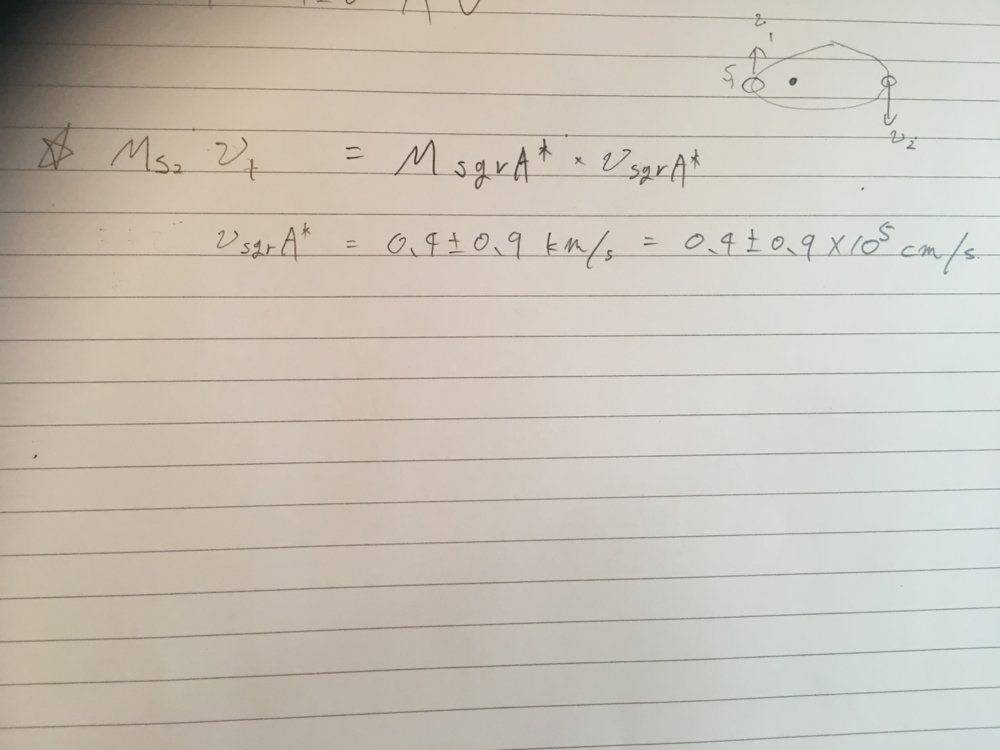 v₂
☆ M_S₂ v_t = M sgrA* × v_sgrA*
v_sgrA* = 0.4 ± 0.9 km/s = 0.4 ± 0.9 × 10⁵ cm/s.